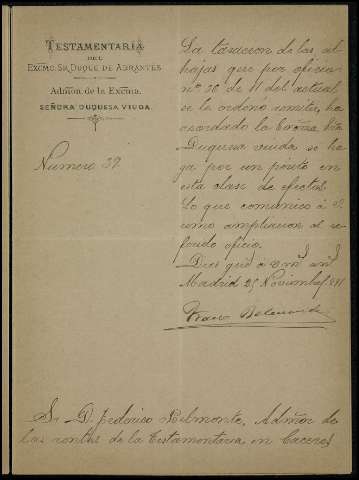 TESTAMENTARÍA
DEL
EXCMO. SR. DUQUE DE ABRANTES
Admón. de la Excma.
SEÑORA DUQUESA VIUDA.
Numero 39.
La tasacion de las al-
hajas que por oficio
nº 38 de 11 del actual
se le ordenó remitir, ha
acordado la Excma. Sra.
Duquesa viuda se ha-
ga por un perito en
esta clase de efectos.
Lo que comunico á V.
como ampliacion al re-
ferido oficio.
Dios gue á V. ms. as.
Madrid 25 Noviembre
Franco Belmonte
Sr. D. Federico Belmonte, Admor de
las rentas de la Testamentaria en Caceres